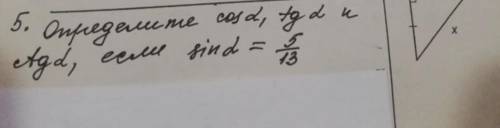 5. Определите cosα, tgα и
ctgα, если sinα = 5/13
x